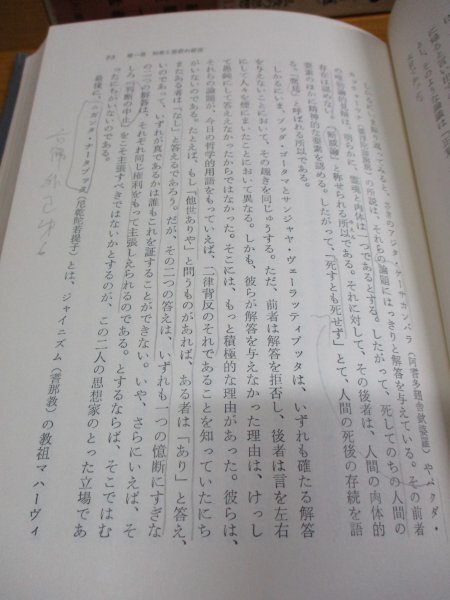 しかるにいま振り返ってみると、さきのアジタ・ケーサカンバラ（阿耆多翅舎欽婆羅）やパクダ・
カッチャーヤナの所説は、それらの論題にはっきりと解答を与えている。その前者
の唯物論的見解は、明らかに、霊魂と肉体は一つであるとする。したがって、死してのちの人間の
存在は認めない。「断滅論」と称せられる所以である。それに対して、その後者は、人間の肉体的
要素のほかに精神的な要素を認める。したがって、「死すとも死せず」とて、人間の死後の存続を語
る。「常見」と呼ばれる所以である。
しかるにいま、ブッダ・ゴータマとサンジャヤ・ヴェーラッティプッタは、いずれも確たる解答
を与えないことにおいて、その趣きを同じゅうする。ただ、前者は解答を拒否し、後者は言を左右
にして人々を煙にまいたことにおいて異なる。しかも、彼らが解答を与えなかった理由は、けっし
て愚鈍にして答ええなかったからではなかった。そこには、もっと積極的な理由があった。彼らは、
それらの論題が、今日の哲学的用語をもっていえば、二律背反のそれであることを知っていたにち
がいない。たとえば、もし「他世ありや」と問うものがあれば、ある者は「あり」と答え、
またある者は「なし」と答えるであろう。だが、その二つの答えは、いずれも一つの憶断にすぎな
いのであって、いずれが真であるかは誰もこれを証することができない。いや、さらにいえば、そ
の二つの解答は、それぞれ同じ権利をもって主張しえられるのである。とするならば、そこではむ
しろ「判断の中止」をこそ主張すべきではないかとするのが、この二人の思想家のとった立場であ
ったにちがいないのである。
最後に、ニガンタ・ナータプッタ（尼乾陀若提子）とは、ジャイニズム（耆那教）の教祖マハーヴィ